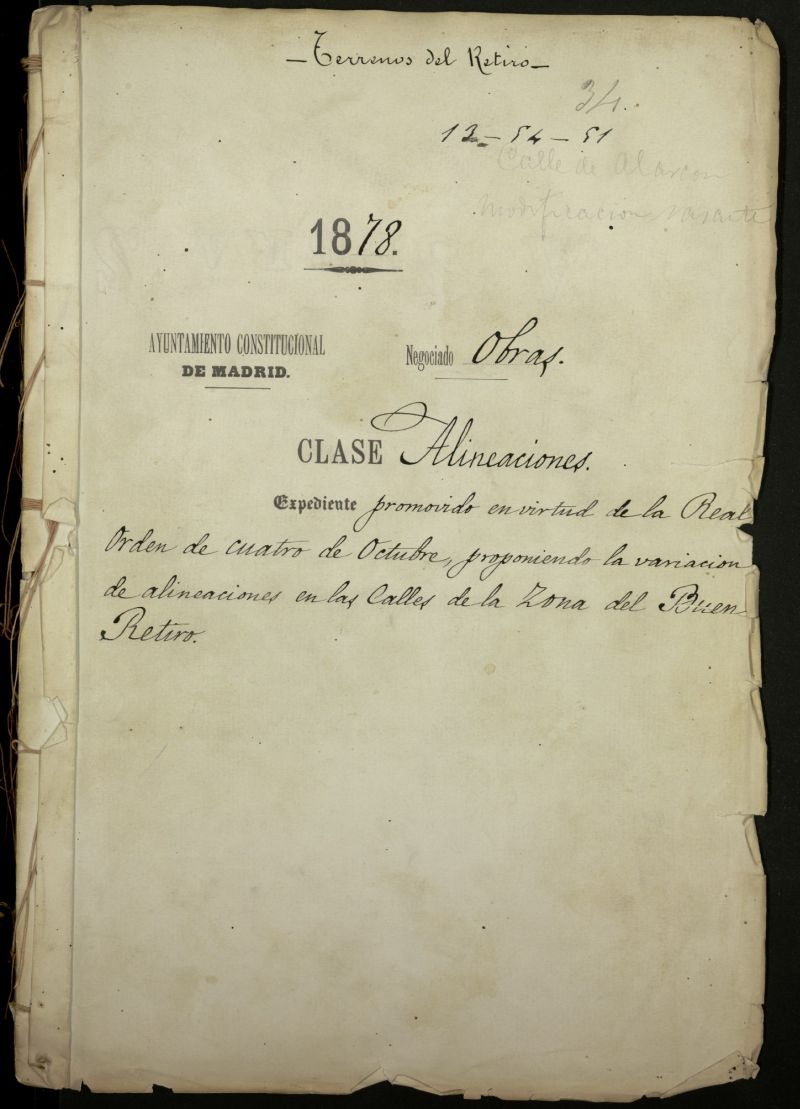 — Terrenos del Retiro —
34.
13 - 54 - 51
Calle de Alarcon
modificacion rasante
1878.
AYUNTAMIENTO CONSTITUCIONAL
DE MADRID.
Negociado Obras.
CLASE Alineaciones.
Expediente promovido en virtud de la Real
Orden de cuatro de Octubre, proponiendo la variacion
de alineaciones en las Calles de la Zona del Buen-
Retiro.